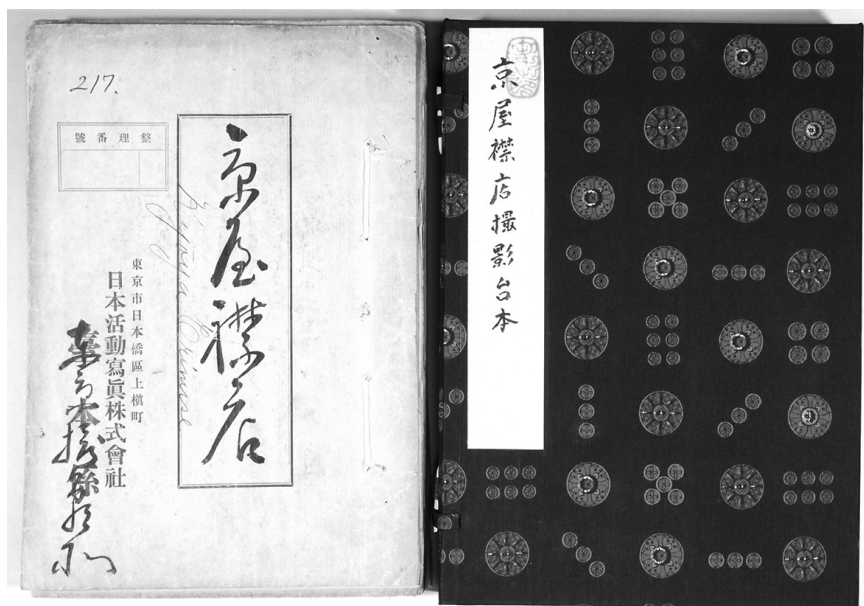 217.
整理番號
京屋襟店
Kyoya Erimise
東京市日本橋區上槇町
日本活動寫眞株式會社
京屋襟店撮影台本